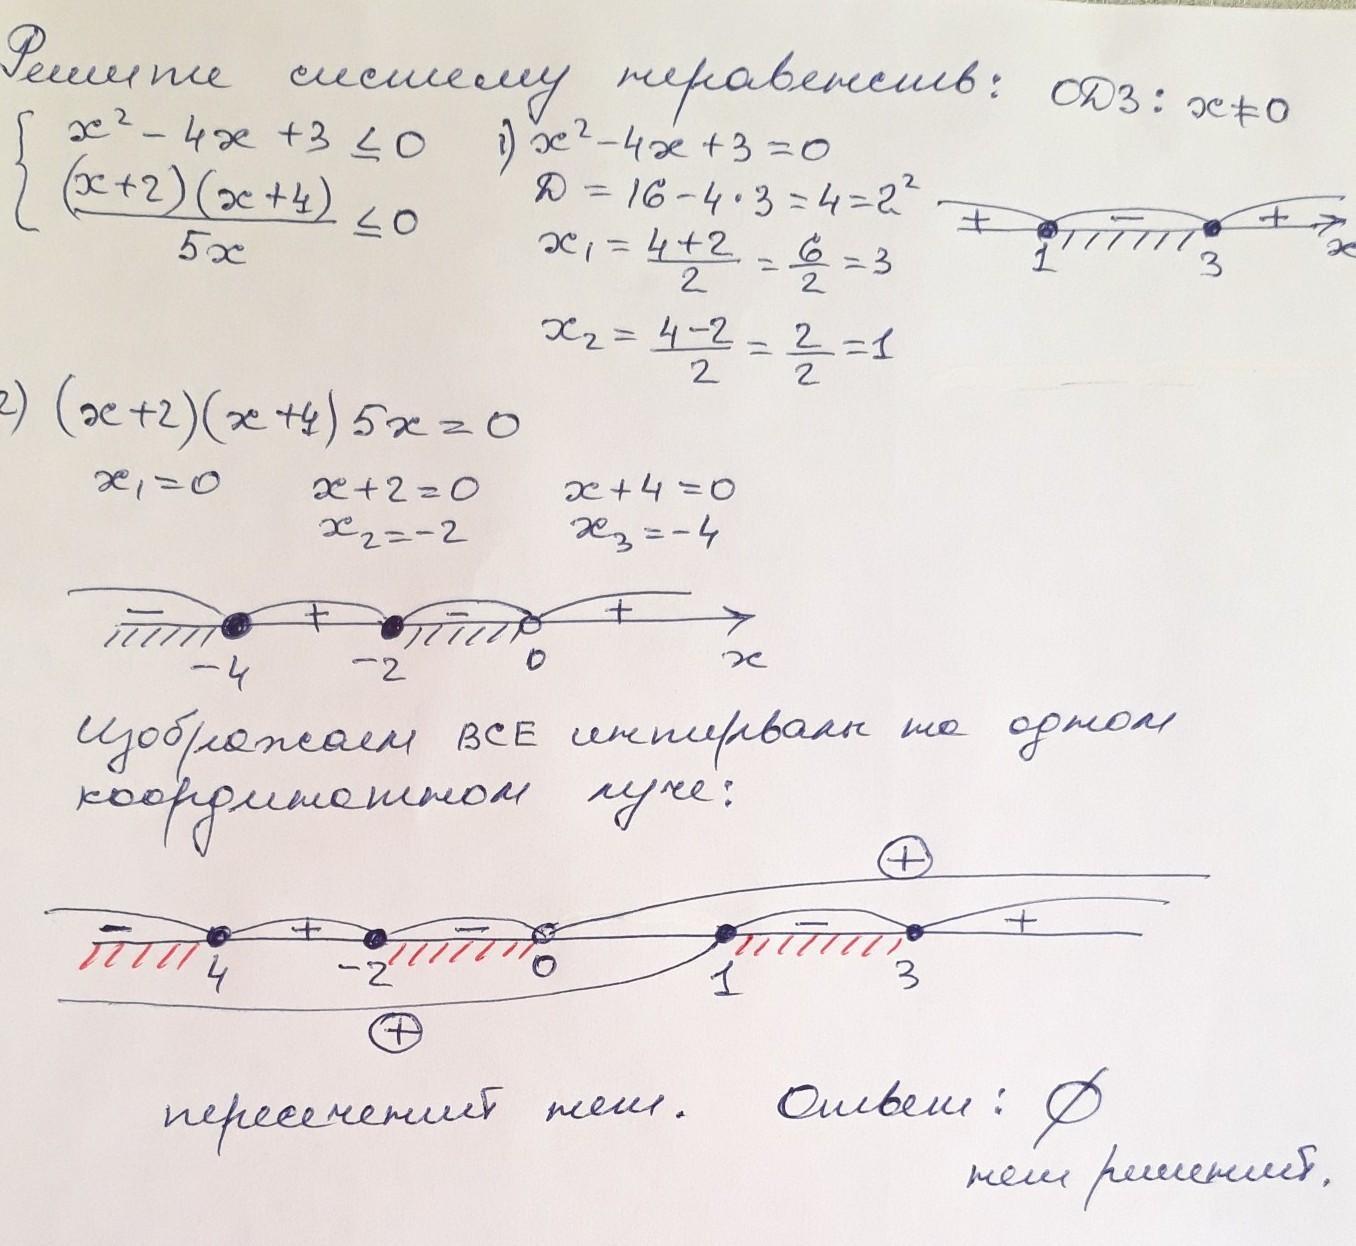 Решите систему неравенств: ОДЗ: x ≠ 0
{ x² - 4x + 3 ≤ 0
(x+2)(x+4)/5x ≤ 0
1) x² - 4x + 3 = 0
D = 16 - 4·3 = 4 = 2²
x₁ = (4+2)/2 = 6/2 = 3
x₂ = (4-2)/2 = 2/2 = 1
+ − +
1 3 x
2) (x+2)(x+4)5x = 0
x₁ = 0 x+2=0 x+4=0
x₂ = -2 x₃ = -4
− + − +
-4 -2 0 x
Изображаем ВСЕ интервалы на одном
координатном луче:
+
− + − − +
4 -2 0 1 3
+
пересечений нет. Ответ: ∅
нет решений.